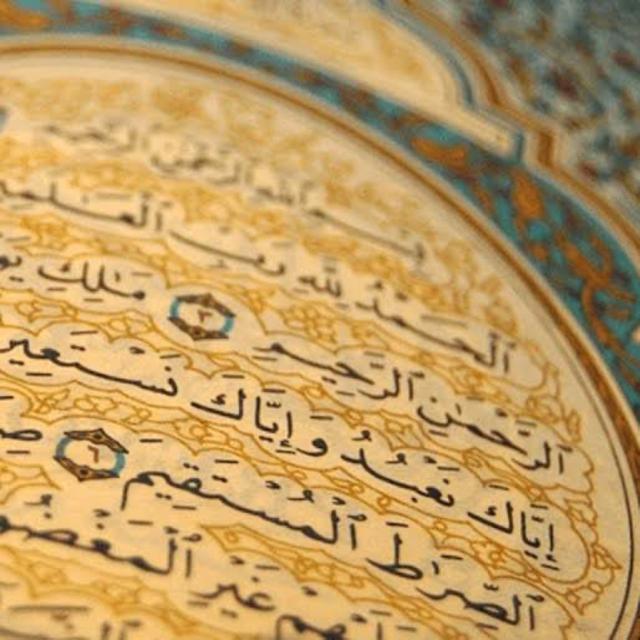 بِسْمِ اللَّهِ الرَّحْمَٰنِ الرَّحِيمِ
ٱلْحَمْدُ لِلَّهِ رَبِّ ٱلْعَٰلَمِينَ
ٱلرَّحْمَٰنِ ٱلرَّحِيمِ ٣ مَٰلِكِ
إِيَّاكَ نَعْبُدُ وَإِيَّاكَ نَسْتَعِين
ٱلصِّرَٰطَ ٱلْمُسْتَقِيمَ ٦
غَيْرِ ٱلْمَغْضُو